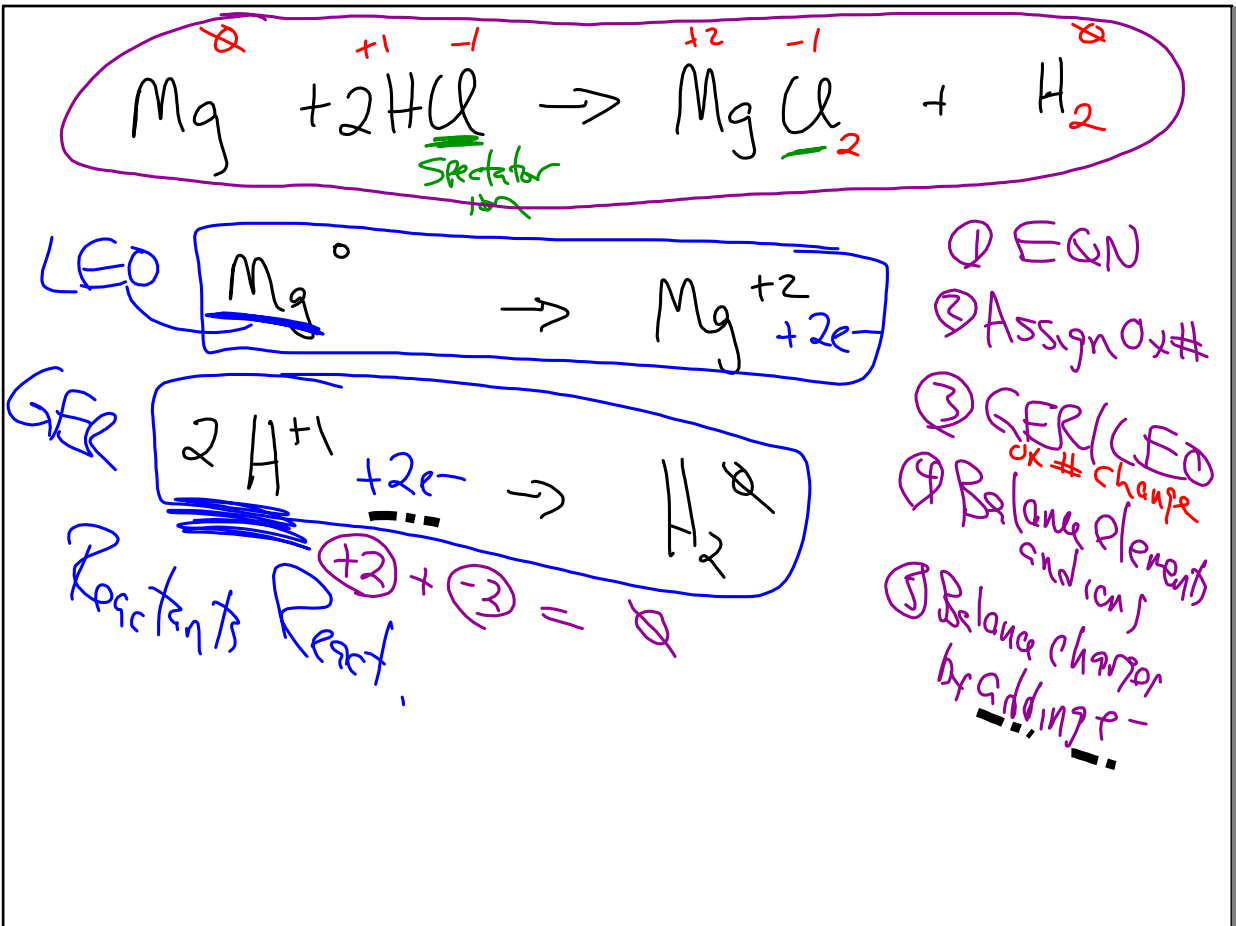 ∅ +1 -1 +2 -1 ∅
Mg +2HCl → MgCl2 + H2
Spectator
ion
LEO Mg⁰ → Mg⁺² +2e-
GER 2H⁺¹ +2e- → H2 ∅
(+2) + (-3) = ∅
Reactants React.
① EQN
② Assign Ox#
③ GER/LEO
ox # change
④ Balance elements
and ions
⑤ Balance charges
by adding e-